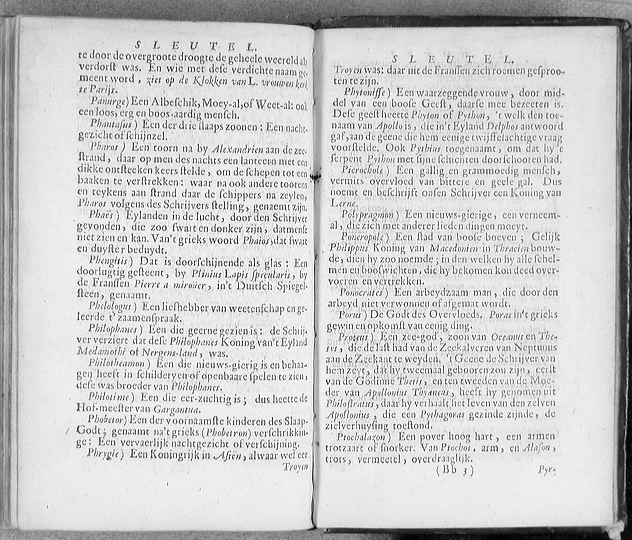 S L E U T E L.
te door de overgroote droogte de geheele weereld als
verdorst was. En wie met dese verdichte naam ge-
meent word, ziet op de Klokken van L. vrouwen kerk
te Parijs.
Panurge) Een Albeschik, Moey-al, of Weet-al: ook
een loos, erg en boos-aardig mensch.
Phantasus) Een der drie slaaps zoonen: Een nacht-
gezicht of schijnzel.
Pharos) Een toorn na by Alexandrien aan de zee-
strand, daar op men des nachts een lanteern met een
dikke ontsteeken keers stelde, om de schepen tot een
baaken te verstrekken: waar na ook andere toorens
en teykens aan strand daar de schippers na zeylen,
Pharos volgens des Schrijvers stelling, genaemt zijn.
Phaës) Eylanden in de lucht, door den Schrijver
gevonden, die zoo swart en donker zijn, datmense
niet zien en kan. Van't grieks woord Phaios, dat swart
en duyster beduydt.
Phengitis) Dat is doorschijnende als glas: Een
doorlugtig gesteent, by Plinius Lapis specularis, by
de Franssen Pierre a miroüer, in't Duitsch Spiegel-
steen, genaamt.
Philologus) Een liefhebber van weetenschap en ge-
leerde t'zaamenspraak.
Philophanes) Een die geerne gezien is: de Schrij-
ver verziert dat dese Philophanes Koning van't Eyland
Medamothi of Nergens-land, was.
Philotheamon) Een die nieuws-gierig is en behaa-
gen heeft in schilderyen of openbaare spelen te zien;
dese was broeder van Philophanes.
Philotime) Een die eer-zuchtig is; dus heette de
Hof-meester van Gargantua.
Phobetor) Een der voornaamste kinderen des Slaap-
Godt; genaamt na't grieks (Phobetron) verschrikkin-
ge: Een vervaerlijk nachtgezicht of verschijning.
Phrygie) Een Koningrijk in Asiën, alwaar wel eer
Troyen
S L E U T E L.
Troyen was: daar uit de Franssen zich roemen gesproo-
ten te zijn.
Phytonisse) Een waarzeggende vrouw, door mid-
del van een boose Geest, daarse mee bezeeten is.
Dese geest heette Phyton of Python, 't welk den toe-
naam van Apollo is, die in't Eyland Delphos antwoord
gaf, aan de geene die hem eenige twijfelachtige vraag
voorstelde. Ook Pythius toegenaamt, om dat hy 't
serpent Python met sijne schichten doorschooten had.
Pierochole) Een gallig en grammoedig mensch,
vermits overvloed van bittere en geele gal. Dus
noemt en beschrijft onsen Schrijver een Koning van
Lerne.
Polypragmon) Een nieuws-gierige, een verneem-
al, die zich met anderer lieden dingen moeyt.
Poneropole) Een stad van boose boeven; Gelijk
Philippus Koning van Macedonien in Thracien bouw-
de, dien hy zoo noemde; in den welken hy alle schel-
men en booswichten, die hy bekomen kon deed over-
voeren en vertrekken.
Ponocrates) Een arbeydzaam man, die door den
arbeyd niet verwonnen of afgemat wordt.
Porus) De God des Overvloeds. Poros in't grieks
gewin en opkomst van eenig ding.
Proteus) Een zee-god, zoon van Oceanus en The-
tis, die de last had van de Zeekalveren van Neptunus
aan de Zeekant te weyden. 't Geene de Schrijver van
hem zeyt, dat hy tweemaal gebooren zou zijn, eerst
van de Godinne Thetis, en ten tweeden van de Moe-
der van Apollonius Thyaneus, heeft hy genomen uit
Philostratus, daar hy verhaalt het leven van den zelven
Apollonius, die een Pythagoras gezinde zijnde, de
zielverhuysing toestond.
Ptochalazon) Een pover hoog hart, een armen
trotzaart of snorker. Van Ptochos, arm, en Alason,
trots, vermeetel, overdraaglijk.
(Bb 3) Pyr-